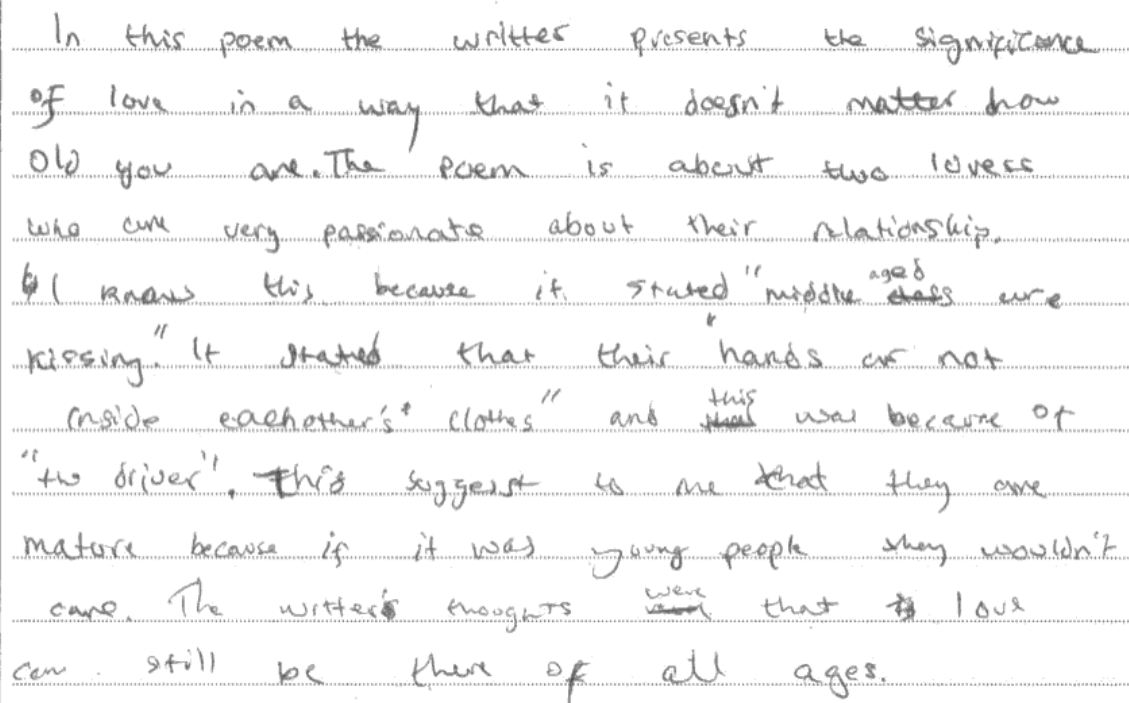 In this poem the writter presents the significance
of love in a way that it doesn't matter how
old you are. The poem is about two lovers
who are very passionate about their relationship.
I knows this because it stated "middle aged are
kissing." It stated that their "hands are not
inside eachother's clothes" and this was because of
"the driver". This suggerst to me that they are
mature because if it was young people they wouldn't
care. The writter's thoughts were that love
can still be there of all ages.